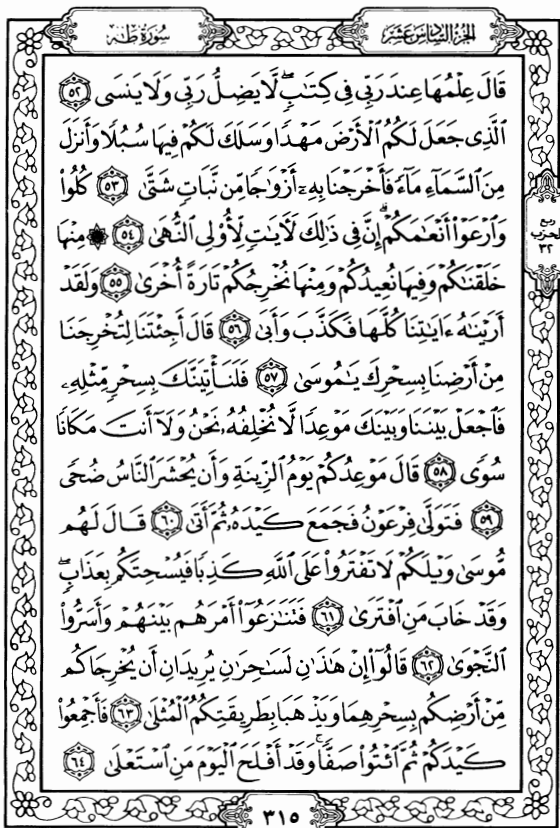 الجزء السادس عشر
سورة طه
قَالَ عِلْمُهَا عِندَ رَبِّى فِى كِتَٰبٍۖ لَّا يَضِلُّ رَبِّى وَلَا يَنسَى ٥٢
ٱلَّذِى جَعَلَ لَكُمُ ٱلْأَرْضَ مَهْدًا وَسَلَكَ لَكُمْ فِيهَا سُبُلًا وَأَنزَلَ
مِنَ ٱلسَّمَآءِ مَآءً فَأَخْرَجْنَا بِهِۦٓ أَزْوَٰجًا مِّن نَّبَاتٍ شَتَّىٰ ٥٣ كُلُوا۟
وَٱرْعَوْا۟ أَنْعَٰمَكُمْۗ إِنَّ فِى ذَٰلِكَ لَءَايَٰتٍ لِّأُو۟لِى ٱلنُّهَىٰ ٥٤ ۞ مِنْهَا
خَلَقْنَٰكُمْ وَفِيهَا نُعِيدُكُمْ وَمِنْهَا نُخْرِجُكُمْ تَارَةً أُخْرَىٰ ٥٥ وَلَقَدْ
أَرَيْنَٰهُ ءَايَٰتِنَا كُلَّهَا فَكَذَّبَ وَأَبَىٰ ٥٦ قَالَ أَجِئْتَنَا لِتُخْرِجَنَا
مِنْ أَرْضِنَا بِسِحْرِكَ يَٰمُوسَىٰ ٥٧ فَلَنَأْتِيَنَّكَ بِسِحْرٍ مِّثْلِهِۦ
فَٱجْعَلْ بَيْنَنَا وَبَيْنَكَ مَوْعِدًا لَّا نُخْلِفُهُۥ نَحْنُ وَلَآ أَنتَ مَكَانًا
سُوًى ٥٨ قَالَ مَوْعِدُكُمْ يَوْمُ ٱلزِّينَةِ وَأَن يُحْشَرَ ٱلنَّاسُ ضُحًى
٥٩ فَتَوَلَّىٰ فِرْعَوْنُ فَجَمَعَ كَيْدَهُۥ ثُمَّ أَتَىٰ ٦٠ قَالَ لَهُم
مُّوسَىٰ وَيْلَكُمْ لَا تَفْتَرُوا۟ عَلَى ٱللَّهِ كَذِبًا فَيُسْحِتَكُم بِعَذَابٍۖ
وَقَدْ خَابَ مَنِ ٱفْتَرَىٰ ٦١ فَتَنَٰزَعُوٓا۟ أَمْرَهُم بَيْنَهُمْ وَأَسَرُّوا۟
ٱلنَّجْوَىٰ ٦٢ قَالُوٓا۟ إِنْ هَٰذَٰنِ لَسَٰحِرَٰنِ يُرِيدَانِ أَن يُخْرِجَاكُم
مِّنْ أَرْضِكُم بِسِحْرِهِمَا وَيَذْهَبَا بِطَرِيقَتِكُمُ ٱلْمُثْلَىٰ ٦٣ فَأَجْمِعُوا۟
كَيْدَكُمْ ثُمَّ ٱئْتُوا۟ صَفًّاۚ وَقَدْ أَفْلَحَ ٱلْيَوْمَ مَنِ ٱسْتَعْلَىٰ ٦٤
ربع
الحزب
٣٢
٣١٥